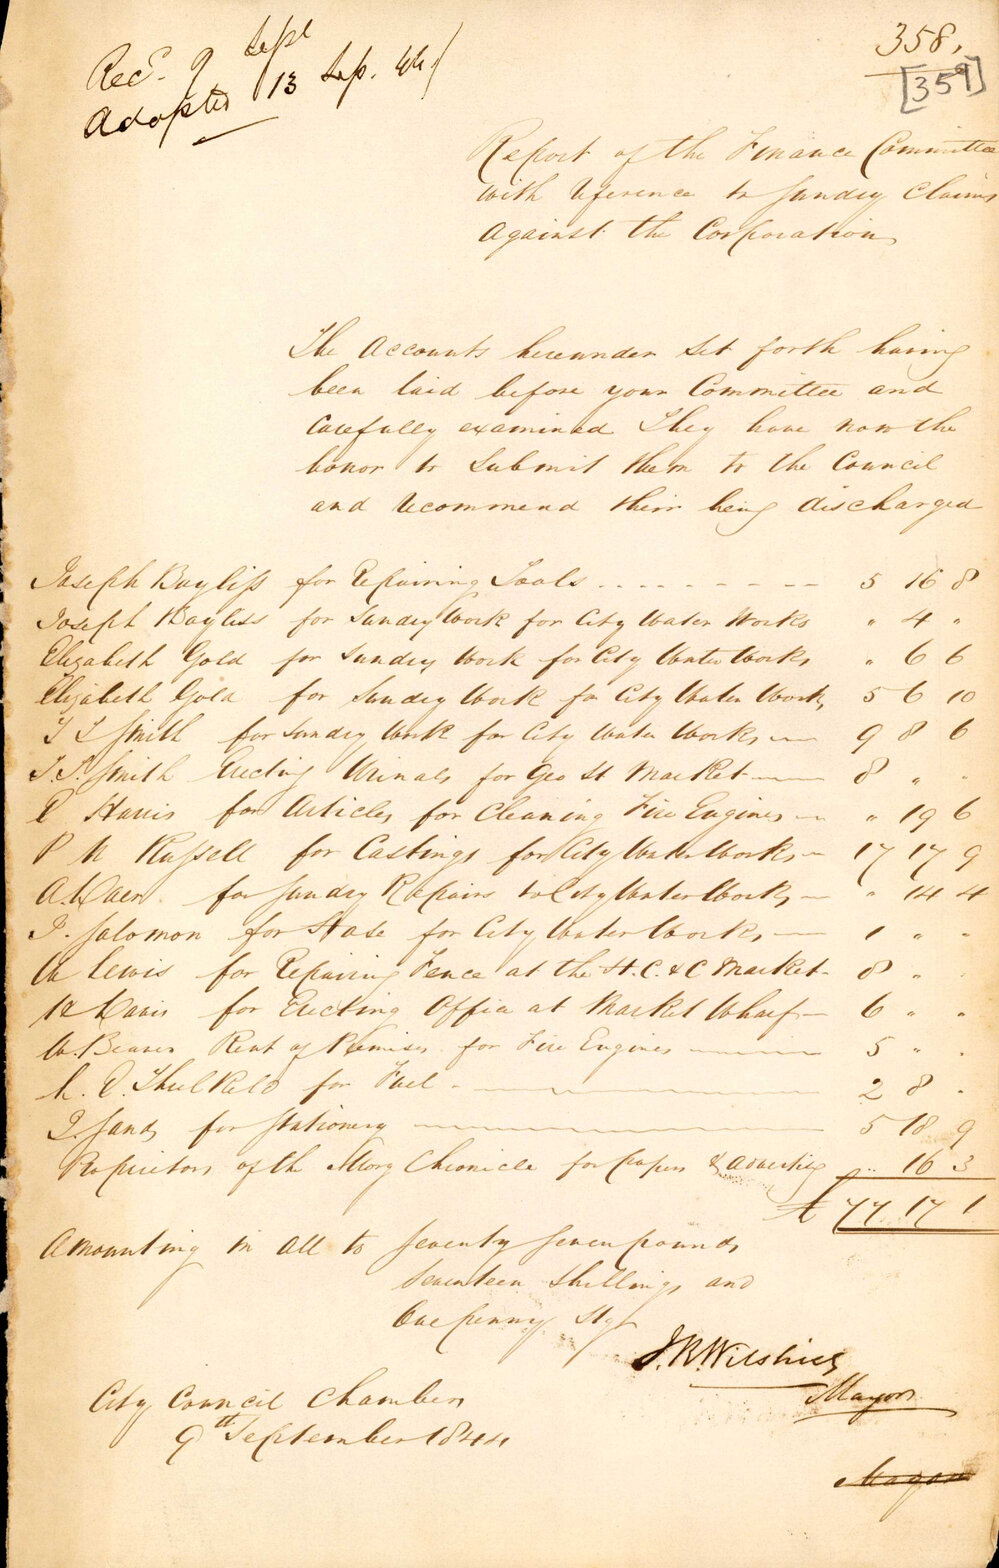 Recd. 9 Sept
Adopted 13 Sep. 44
358.
[359]
Report of the Finance Committee
with reference to sundry claims
against the Corporation
The Accounts hereunder set forth having
been laid before your Committee and
Carefully examined They have now the
honor to submit them to the Council
and recommend their being discharged
Joseph Bayliss for Repairing Tools - - - - - - - - - 5 16 8
Joseph Bayliss for Sundry Work for City Water Works " 4 "
Elizabeth Gold for Sundry Work for City Water Works " 6 6
Elizabeth Gold for Sundry Work for City Water Works 5 6 10
T S Smith for Sundry Work for City Water Works 9 8 6
T. S. Smith Erecting Urinals for Geo St Market 8 " "
Harris for Articles for Cleaning Fire Engines " 19 6
P N Russell for Castings for City Water Works 17 17 9
A. for Sundry Repairs to City Water Works " 14 4
J. Solomon for for City Water Works 1 " "
W Lewis for Repairing Fence at the H. C. & C Market 8 " "
Davis for Erecting Office at Market Wharf 6 " "
W. Beaver Rent of Premises for Fire Engines 5 " "
Thelkeld for Fuel 2 8 "
J. Sands for Stationery 5 18 9
Proprietors of the Morg Chronicle for papers & Advertisg " 16 3
£ 77 17 1
Amounting in all to Seventy seven pounds
Seventeen Shillings and
One penny Stg
J. R. Wilshire
Mayor
City Council Chamber
9th September 1844
Mayor